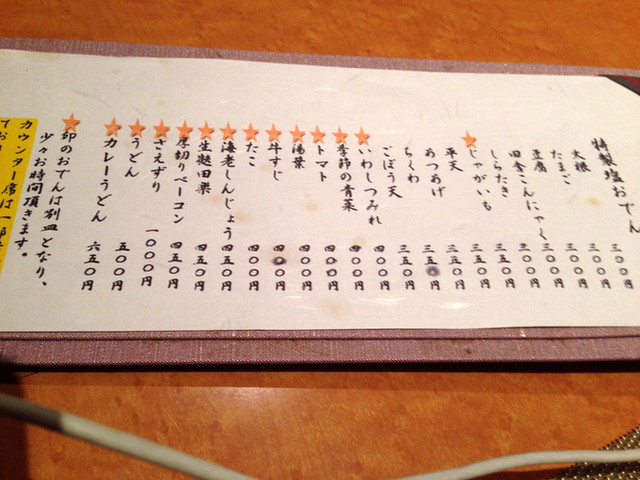 特製塩おでん
大根 三〇〇円
たまご 三〇〇円
豆腐 三〇〇円
田舎こんにゃく 三〇〇円
しらたき 三〇〇円
★じゃがいも 三五〇円
平天 三五〇円
あつあげ 三〇〇円
ちくわ 三五〇円
ごぼう天 三五〇円
★いわしつみれ 四〇〇円
★季節の青菜 四〇〇円
★トマト 四〇〇円
★湯葉 四〇〇円
★牛すじ 四〇〇円
★たこ 四〇〇円
★海老しんじょう 四五〇円
★生麩田楽 四五〇円
★厚切りベーコン 四五〇円
★さえずり 一〇〇〇円
★うどん 五〇〇円
★カレーうどん 六五〇円
★印のおでんは別皿となり、
少々お時間頂きます。
カウンター席は一部
ており